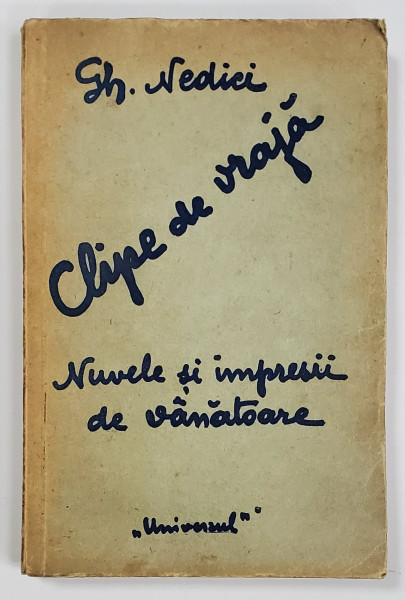 Gh. Nedici
Clipe de vrajă
Nuvele și impresii
de vânătoare
„Universul"